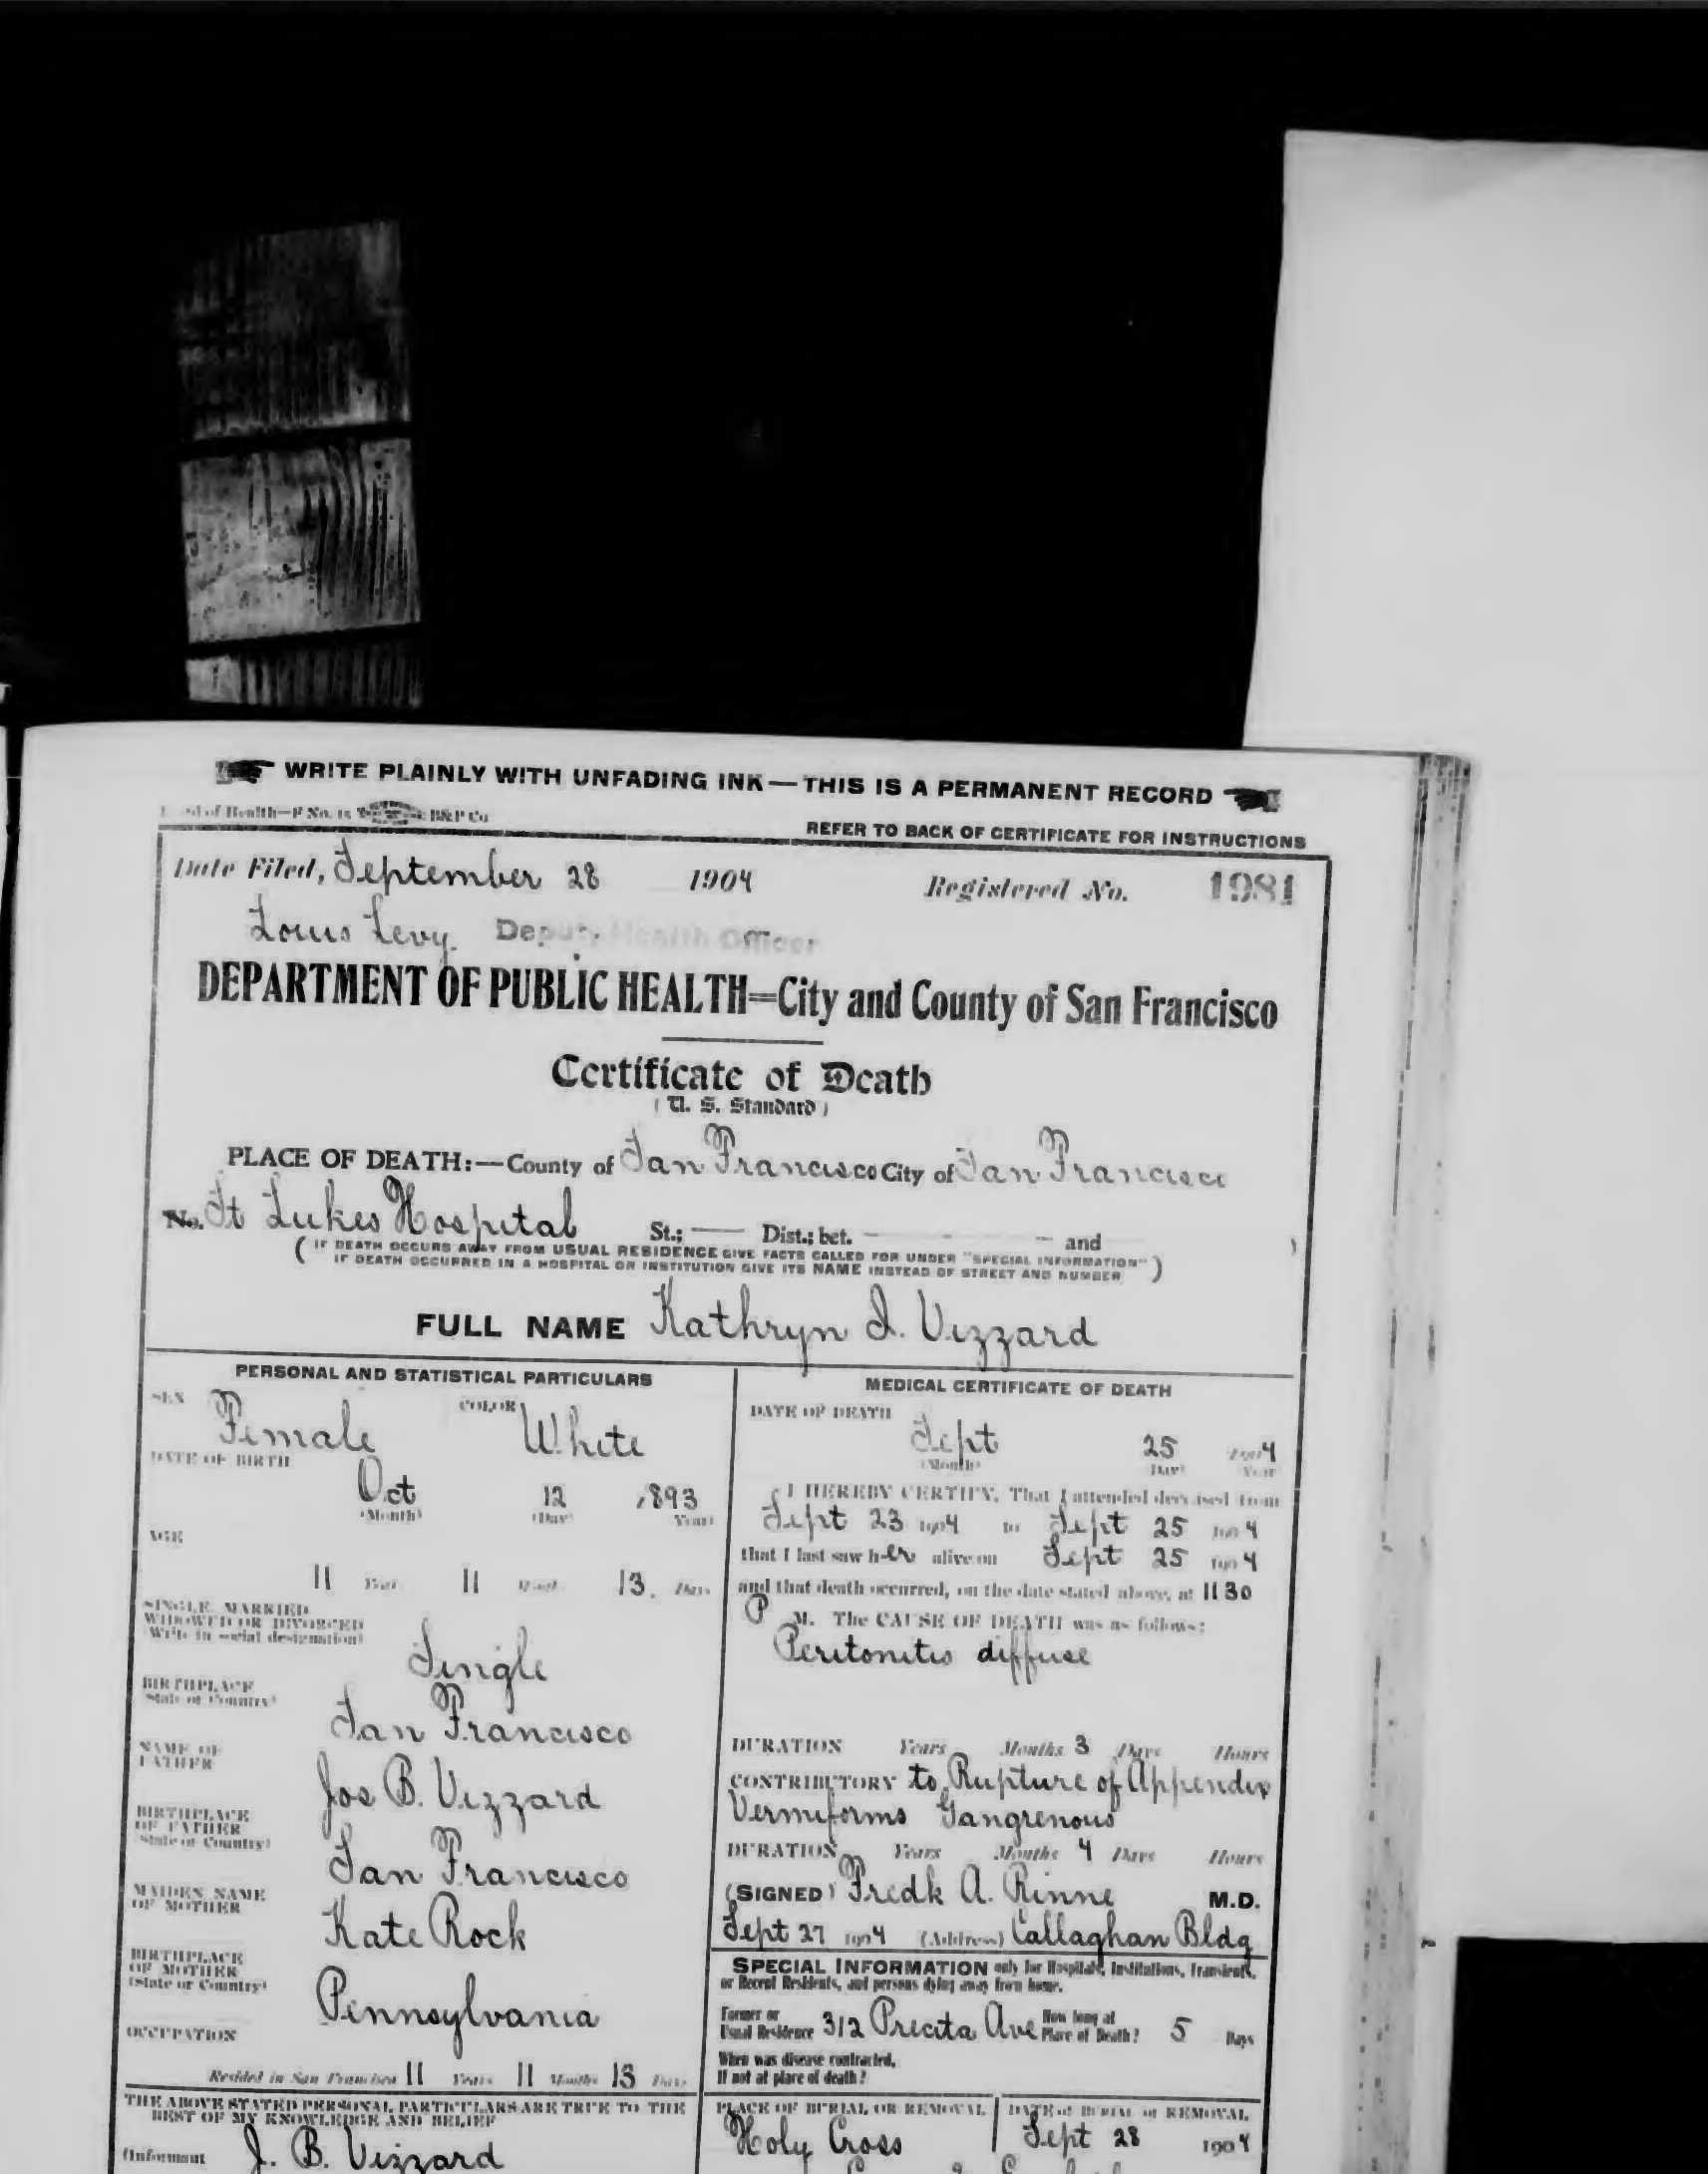 WRITE PLAINLY WITH UNFADING INK—THIS IS A PERMANENT RECORD
of Health—F No. 15 B&P Co
REFER TO BACK OF CERTIFICATE FOR INSTRUCTIONS
Date Filed, September 28 1904 Registered No. 1981
Louis Levy. Deputy Health Officer
DEPARTMENT OF PUBLIC HEALTH=City and County of San Francisco
Certificate of Death
(U. S. Standard)
PLACE OF DEATH:—County of San Francisco City of San Francisco
No. St Lukes Hospital St.; — Dist.; bet. — and )
( IF DEATH OCCURS AWAY FROM USUAL RESIDENCE GIVE FACTS CALLED FOR UNDER "SPECIAL INFORMATION" )
IF DEATH OCCURRED IN A HOSPITAL OR INSTITUTION GIVE ITS NAME INSTEAD OF STREET AND NUMBER
FULL NAME Kathryn I. Vizzard
PERSONAL AND STATISTICAL PARTICULARS
SEX Female COLOR White
DATE OF BIRTH
Oct 12 1893
(Month) (Day) (Year)
AGE
11 Years 11 Months 13. Days
SINGLE, MARRIED,
WIDOWED OR DIVORCED
(Write in social designation)
Single
BIRTHPLACE
(State or Country)
San Francisco
NAME OF
FATHER
Jos B. Vizzard
BIRTHPLACE
OF FATHER
(State or Country)
San Francisco
MAIDEN NAME
OF MOTHER
Kate Rock
BIRTHPLACE
OF MOTHER
(State or Country)
Pennsylvania
OCCUPATION
Resided in San Francisco 11 Years 11 Months 13 Days
THE ABOVE STATED PERSONAL PARTICULARS ARE TRUE TO THE
BEST OF MY KNOWLEDGE AND BELIEF
(Informant J. B. Vizzard
MEDICAL CERTIFICATE OF DEATH
DATE OF DEATH
Sept 25 1904
(Month) (Day) Year
I HEREBY CERTIFY, That I attended deceased from
Sept 23 1904 to Sept 25 1904
that I last saw her alive on Sept 25 1904
and that death occurred, on the date stated above, at 11 30
P M. The CAUSE OF DEATH was as follows:
Peritonitis diffuse
DURATION Years Months 3 Days Hours
CONTRIBUTORY to Rupture of Appendix
Vermiforms Gangrenous
DURATION Years Months 4 Days Hours
(SIGNED) Fredk A. Rinne M.D.
Sept 27 1904 (Address) Callaghan Bldg
SPECIAL INFORMATION only for Hospitals, Institutions, Transients,
or Recent Residents, and persons dying away from home.
Former or
Usual Residence 312 Precita Ave How long at
Place of Death? 5 Days
When was disease contracted,
If not at place of death?
PLACE OF BURIAL OR REMOVAL
Holy Cross
DATE of BURIAL or REMOVAL
Sept 28 1904